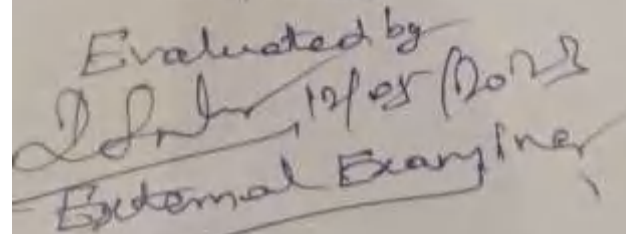 Evaluated by
12/05/2023
External Examiner